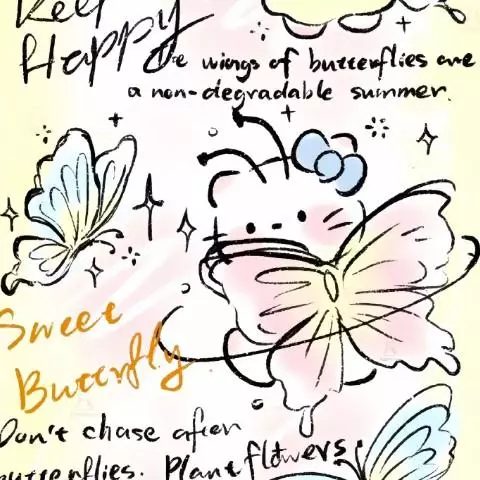 Keep
Happy
The wings of butterflies are
a non-degradable summer.
Sweet
Butterfly
Don't chase after
butterflies. Plant flowers